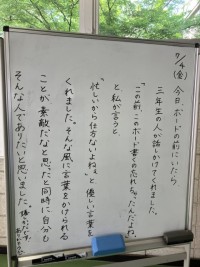 7/4(金) 今日、ボードの前にいたら
三年生の人が話しかけてくれました。
「この前、このボード書くの忘れちゃったんだよね」
と私が言うと、
"忙しいから仕方ないよねぇ"と優しい言葉を
くれました。そんな風に言葉をかけられる
ことが素敵だなと思ったと同時に自分も
そんな人でありたいと思いました。